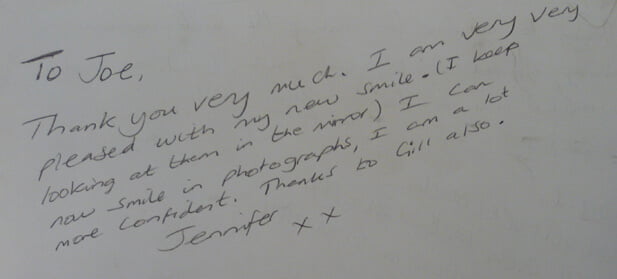 To Joe,
Thank you very much. I am very very
pleased with my new smile. (I keep
looking at them in the mirror) I can
now smile in photographs, I am a lot
more confident. Thanks to Gill also.
Jennifer xx